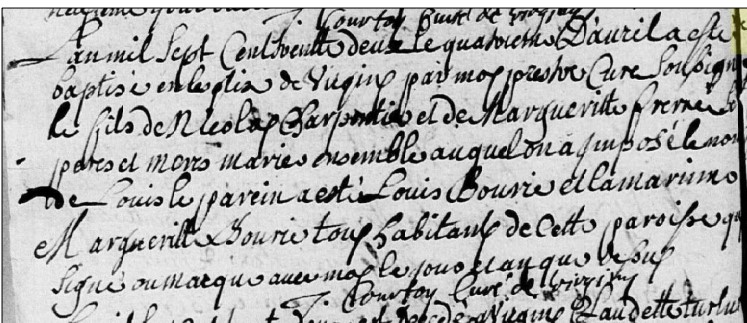 Courtoy Curé de virginy
L'an mil Sept Cent trente deux le quatorieme D'avril a esté
baptisé en leglise de Virginy par moy prestre Curé Soussigné
le fils de Nicolas Charpentier et de Margueritte
peres et meres mariés ensemble auquel on a imposé le nom
de Louis le parein a esté Louis Bourie et la marinne
Margueritte Bourie tous habitans de Cette paroisse qui
signé ou marque avec moy le jour et an que dessus
Courtoy Curé de virginy